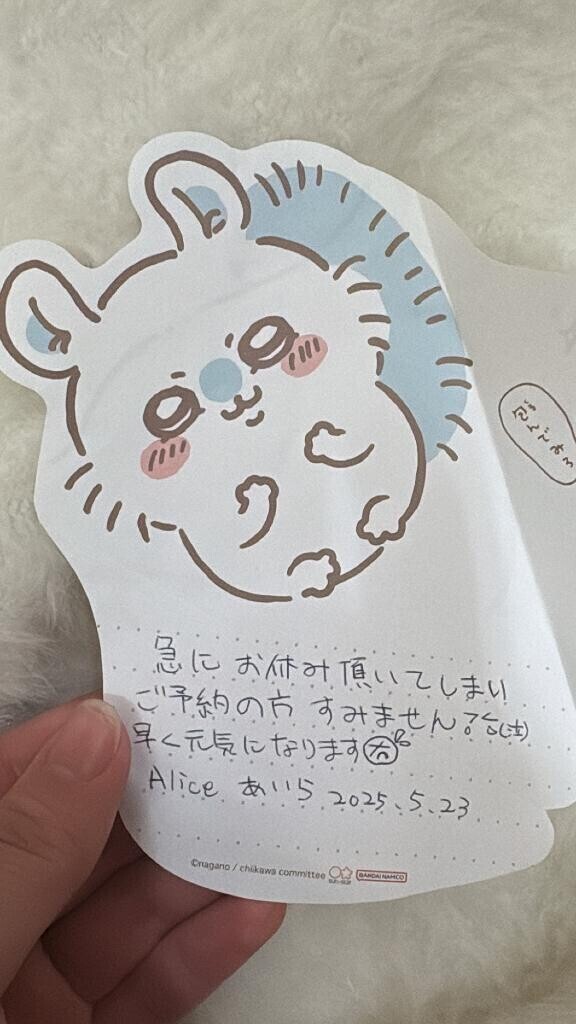 急に お休み頂いてしまい
ご予約の方 すみません
早く元気になります
Alice あいら 2025.5.23
©nagano / chiikawa committee
BANDAI NAMCO